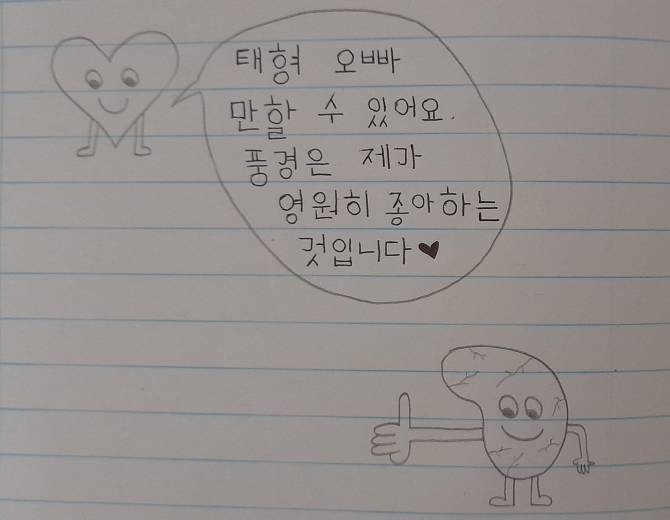 태형 오빠
만할 수 있어요.
풍경은 제가
영원히 종아하는
것입니다♥